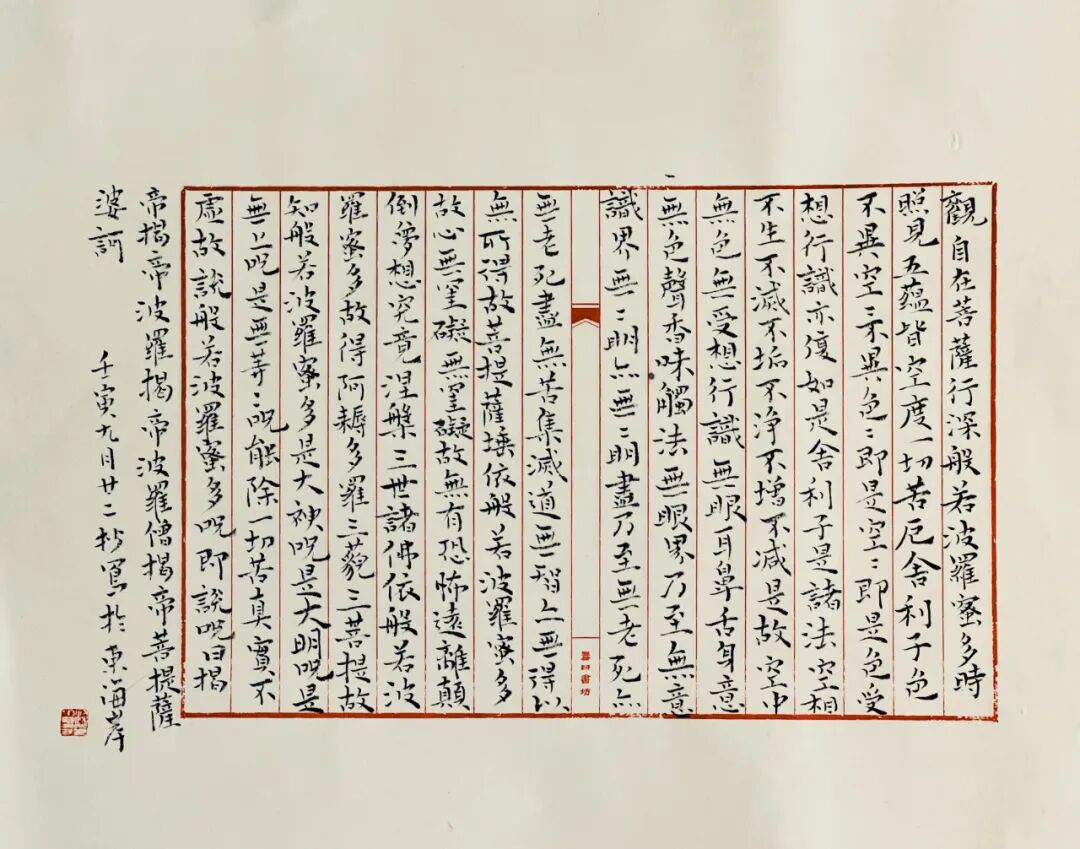 觀自在菩薩行深般若波羅蜜多時
照見五蘊皆空度一切苦厄舍利子色
不異空〻不異色〻即是空〻即是色受
想行識亦復如是舍利子是諸法空相
不生不滅不垢不淨不增不減是故空中
無色無受想行識無眼耳鼻舌身意
無色聲香味觸法無眼界乃至無意
識界無〻明亦無〻明盡乃至無老死亦
書坊
無老死盡無苦集滅道無智亦無得以
無所得故菩提薩埵依般若波羅蜜多
故心無罣礙無罣礙故無有恐怖遠離顛
倒夢想究竟涅槃三世諸佛依般若波
羅蜜多故得阿耨多羅三藐三菩提故
知般若波羅蜜多是大神呪是大明呪是
無上呪是無等〻呪能除一切苦真實不
虛故說般若波羅蜜多呪即說呪曰揭
帝揭帝波羅揭帝波羅僧揭帝菩提薩
婆訶
壬寅九月廿二抄寫於東海岸